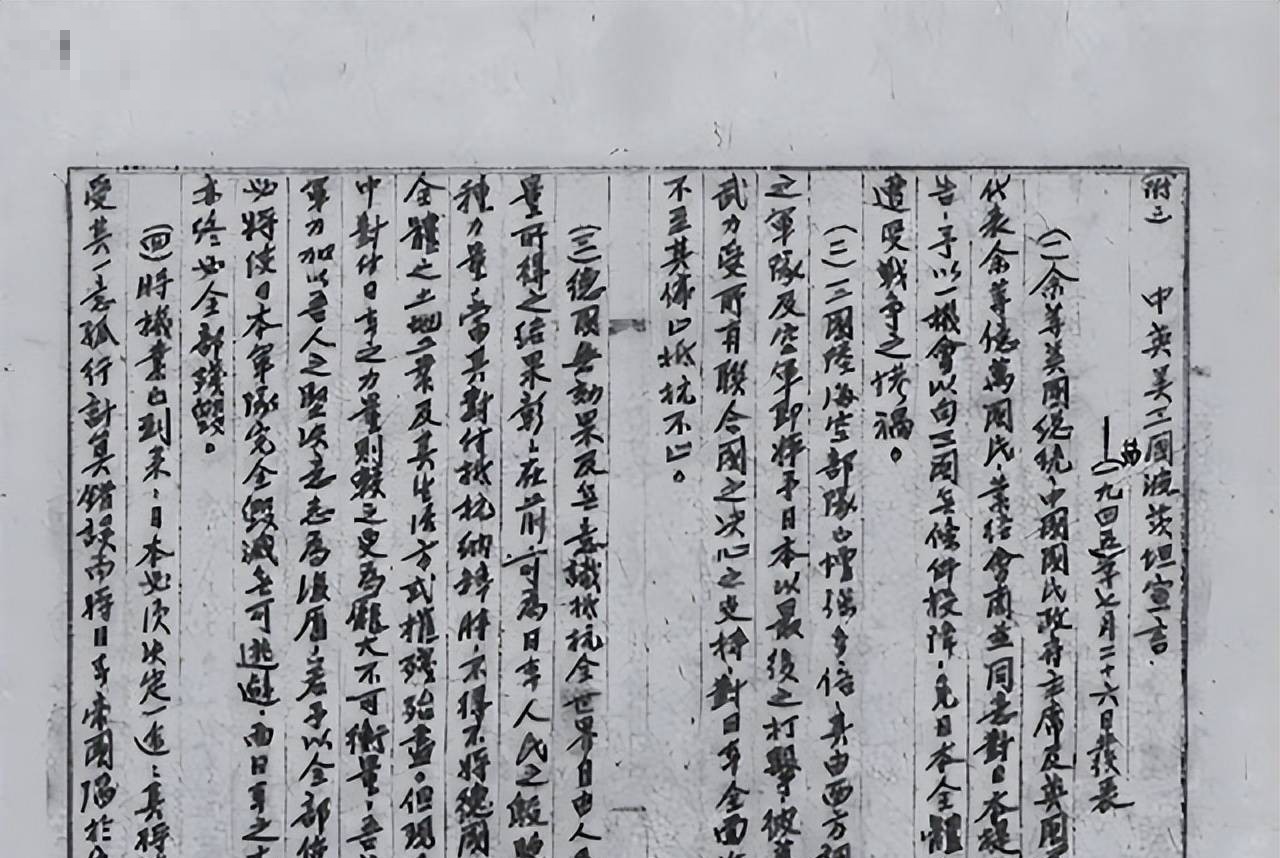 (附二)　中英美三國波茨坦宣言
(一九四五年七月二十六日發表
(一)余等美國總統、中國國民政府主席及英國
代表余等億萬國民、業經會商並同意對日本提
告、予以一機會以向三國無條件投降、免日本全體
遭受戰爭之慘禍。
(二)三國陸海空部隊已增強多倍、其由西方調
之軍隊及空軍即將予日本以最後之打擊、彼等
武力受所有聯合國之決心之支持、對日本全面
不至其停止抵抗不止。
(三)德國無効果及無意識抵抗全世界自由人
量所得之結果彰彰在前、可為日本人民之殷
種力量、當其對付抵抗納粹時、不得不將德國
全體之土地工業及其生活方式摧殘殆盡。但現
中對付日本之力量則較之更為龐大不可衡量、吾
軍力加以吾人之堅決意志為後盾、若予以全部
必將使日本軍隊完全毀滅無可逃避、而日本之
亦終必全部殘毀。
(四)時機業已到來、日本必須決定一途、其將
受其一意孤行計算錯誤而將日本帝國陷於